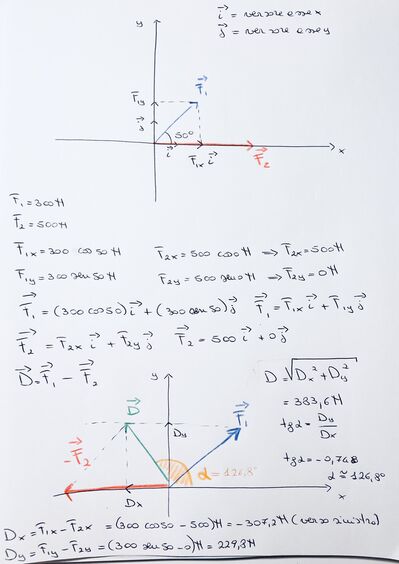 i⃗ = versore asse x
j⃗ = versore asse y
y
F⃗₁
F₁y
j⃗
50°
i⃗
F₁x i⃗
F⃗₂
x
F₁ = 300 N
F₂ = 500 N
F₁x = 300 cos 50 N F₂x = 500 cos 0 N ⟹ F₂x = 500 N
F₁y = 300 sen 50 N F₂y = 500 sen 0 N ⟹ F₂y = 0 N
F⃗₁ = (300 cos 50) i⃗ + (300 sen 50) j⃗ F⃗₁ = F₁x i⃗ + F₁y j⃗
F⃗₂ = F₂x i⃗ + F₂y j⃗ F⃗₂ = 500 i⃗ + 0 j⃗
D⃗ = F⃗₁ - F⃗₂
y
D = √(Dx² + Dy²)
= 383,6 N
tg α = Dy/Dx
tg α = -0,748
α ≅ 126,8°
D⃗
Dy
F⃗₁
-F⃗₂
α = 126,8°
Dx
x
Dx = F₁x - F₂x = (300 cos 50 - 500) N = -307,2 N (verso sinistro)
Dy = F₁y - F₂y = (300 sen 50 - 0) N = 229,8 N